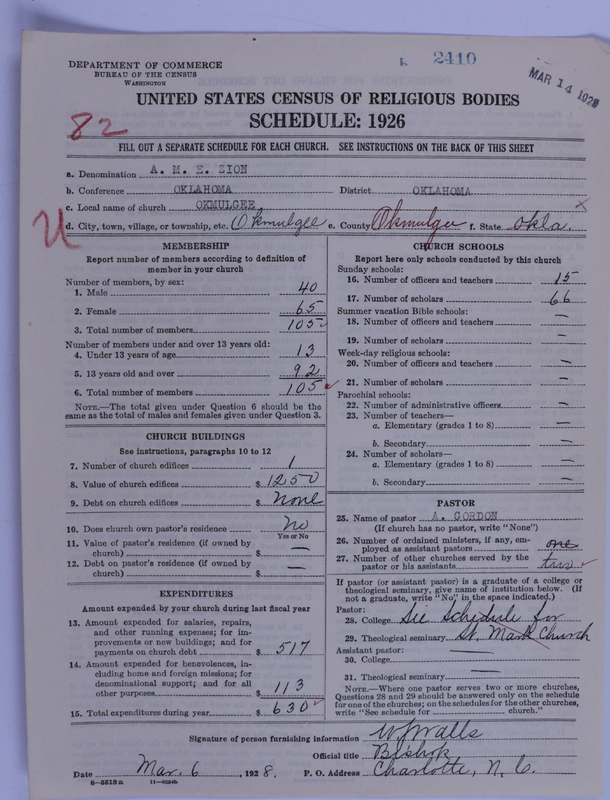 2410
MAR 14 192
DEPARTMENT OF COMMERCE
BUREAU OF THE CENSUS
WASHINGTON
UNITED STATES CENSUS OF RELIGIOUS BODIES
SCHEDULE: 1926
82
FILL OUT A SEPARATE SCHEDULE FOR EACH CHURCH. SEE INSTRUCTIONS ON THE BACK OF THIS SHEET
a. Denomination A. M. E. ZION
b. Conference OKLAHOMA District OKLAHOMA
c. Local name of church OKMULGEE x
U
d. City, town, village, or township, etc. Okmulgee e. County Okmulgee f. State Okla.
MEMBERSHIP
Report number of members according to definition of
member in your church
Number of members, by sex:
1. Male 40
2. Female 65
3. Total number of members 105
Number of members under and over 13 years old:
4. Under 13 years of age 13
5. 13 years old and over 92
6. Total number of members 105
NOTE.—The total given under Question 6 should be the
same as the total of males and females given under Question 3.
CHURCH BUILDINGS
See instructions, paragraphs 10 to 12
7. Number of church edifices 1
8. Value of church edifices $ 1250
9. Debt on church edifices $ None
10. Does church own pastor's residence No
Yes or No
11. Value of pastor's residence (if owned by
church) $ —
12. Debt on pastor's residence (if owned by
church) $ —
EXPENDITURES
Amount expended by your church during last fiscal year
13. Amount expended for salaries, repairs,
and other running expenses; for im-
provements or new buildings; and for
payments on church debt $ 517
14. Amount expended for benevolences, in-
cluding home and foreign missions; for
denominational support; and for all
other purposes 113
15. Total expenditures during year $ 630
CHURCH SCHOOLS
Report here only schools conducted by this church
Sunday schools:
16. Number of officers and teachers 15
17. Number of scholars 66
Summer vacation Bible schools:
18. Number of officers and teachers —
19. Number of scholars —
Week-day religious schools:
20. Number of officers and teachers —
21. Number of scholars —
Parochial schools:
22. Number of administrative officers —
23. Number of teachers—
a. Elementary (grades 1 to 8) —
b. Secondary —
24. Number of scholars—
a. Elementary (grades 1 to 8) —
b. Secondary —
PASTOR
25. Name of pastor A. GORDON
(If church has no pastor, write "None")
26. Number of ordained ministers, if any, em-
ployed as assistant pastors one
27. Number of other churches served by the
pastor or his assistants two
If pastor (or assistant pastor) is a graduate of a college or
theological seminary, give name of institution below. (If
not a graduate, write "No" in the space indicated.)
Pastor:
28. College See Schedule for
29. Theological seminary St. Mark Church
Assistant pastor:
30. College —
31. Theological seminary —
NOTE.—Where one pastor serves two or more churches,
Questions 28 and 29 should be answered only on the schedule
for one of the churches; on the schedules for the other churches,
write "See schedule for church."
Signature of person furnishing information WJWalls
Official title Bishop
Date Mar. 6, 1928. P. O. Address Charlotte, N. C.
8—5513 a 11—9554b